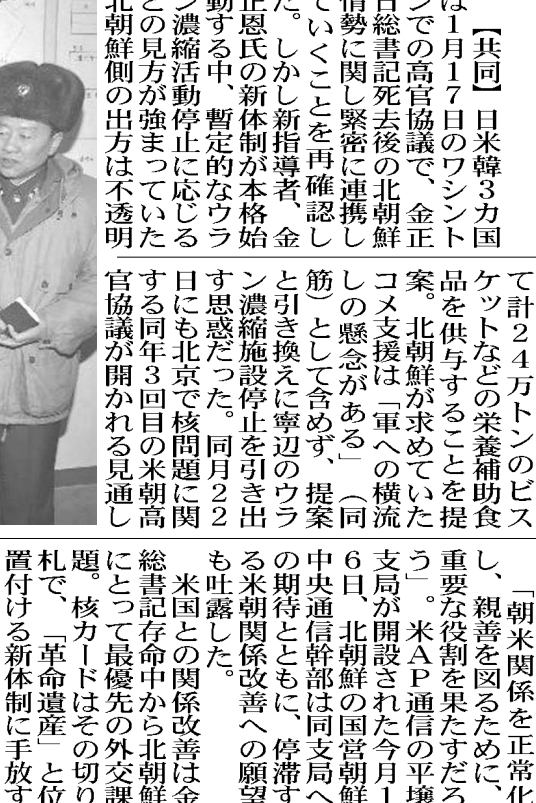 【共同】日米韓３カ国
は１月１７日のワシント
ンでの高官協議で、金正
日総書記死去後の北朝鮮
情勢に関し緊密に連携し
ていくことを再確認し
た。しかし新指導者、金
正恩氏の新体制が本格始
動する中、暫定的なウラ
ン濃縮活動停止に応じる
との見方が強まっていた
北朝鮮側の出方は不透明
て計２４万トンのビス
ケットなどの栄養補助食
品を供与することを提
案。北朝鮮が求めていた
コメ支援は「軍への横流
しの懸念がある」（同
筋）として含めず、提案
と引き換えに寧辺のウラ
ン濃縮施設停止を引き出
す思惑だった。同月２２
日にも北京で核問題に関
する同年３回目の米朝高
官協議が開かれる見通し
「朝米関係を正常化
し、親善を図るために、
重要な役割を果たすだろ
う」。米ＡＰ通信の平壌
支局が開設された今月１
６日、北朝鮮の国営朝鮮
中央通信幹部は同支局へ
の期待とともに、停滞す
る米朝関係改善への願望
も吐露した。
米国との関係改善は金
総書記存命中から北朝鮮
にとって最優先の外交課
題。核カードはその切り
札で、「革命遺産」と位
置付ける新体制に手放す